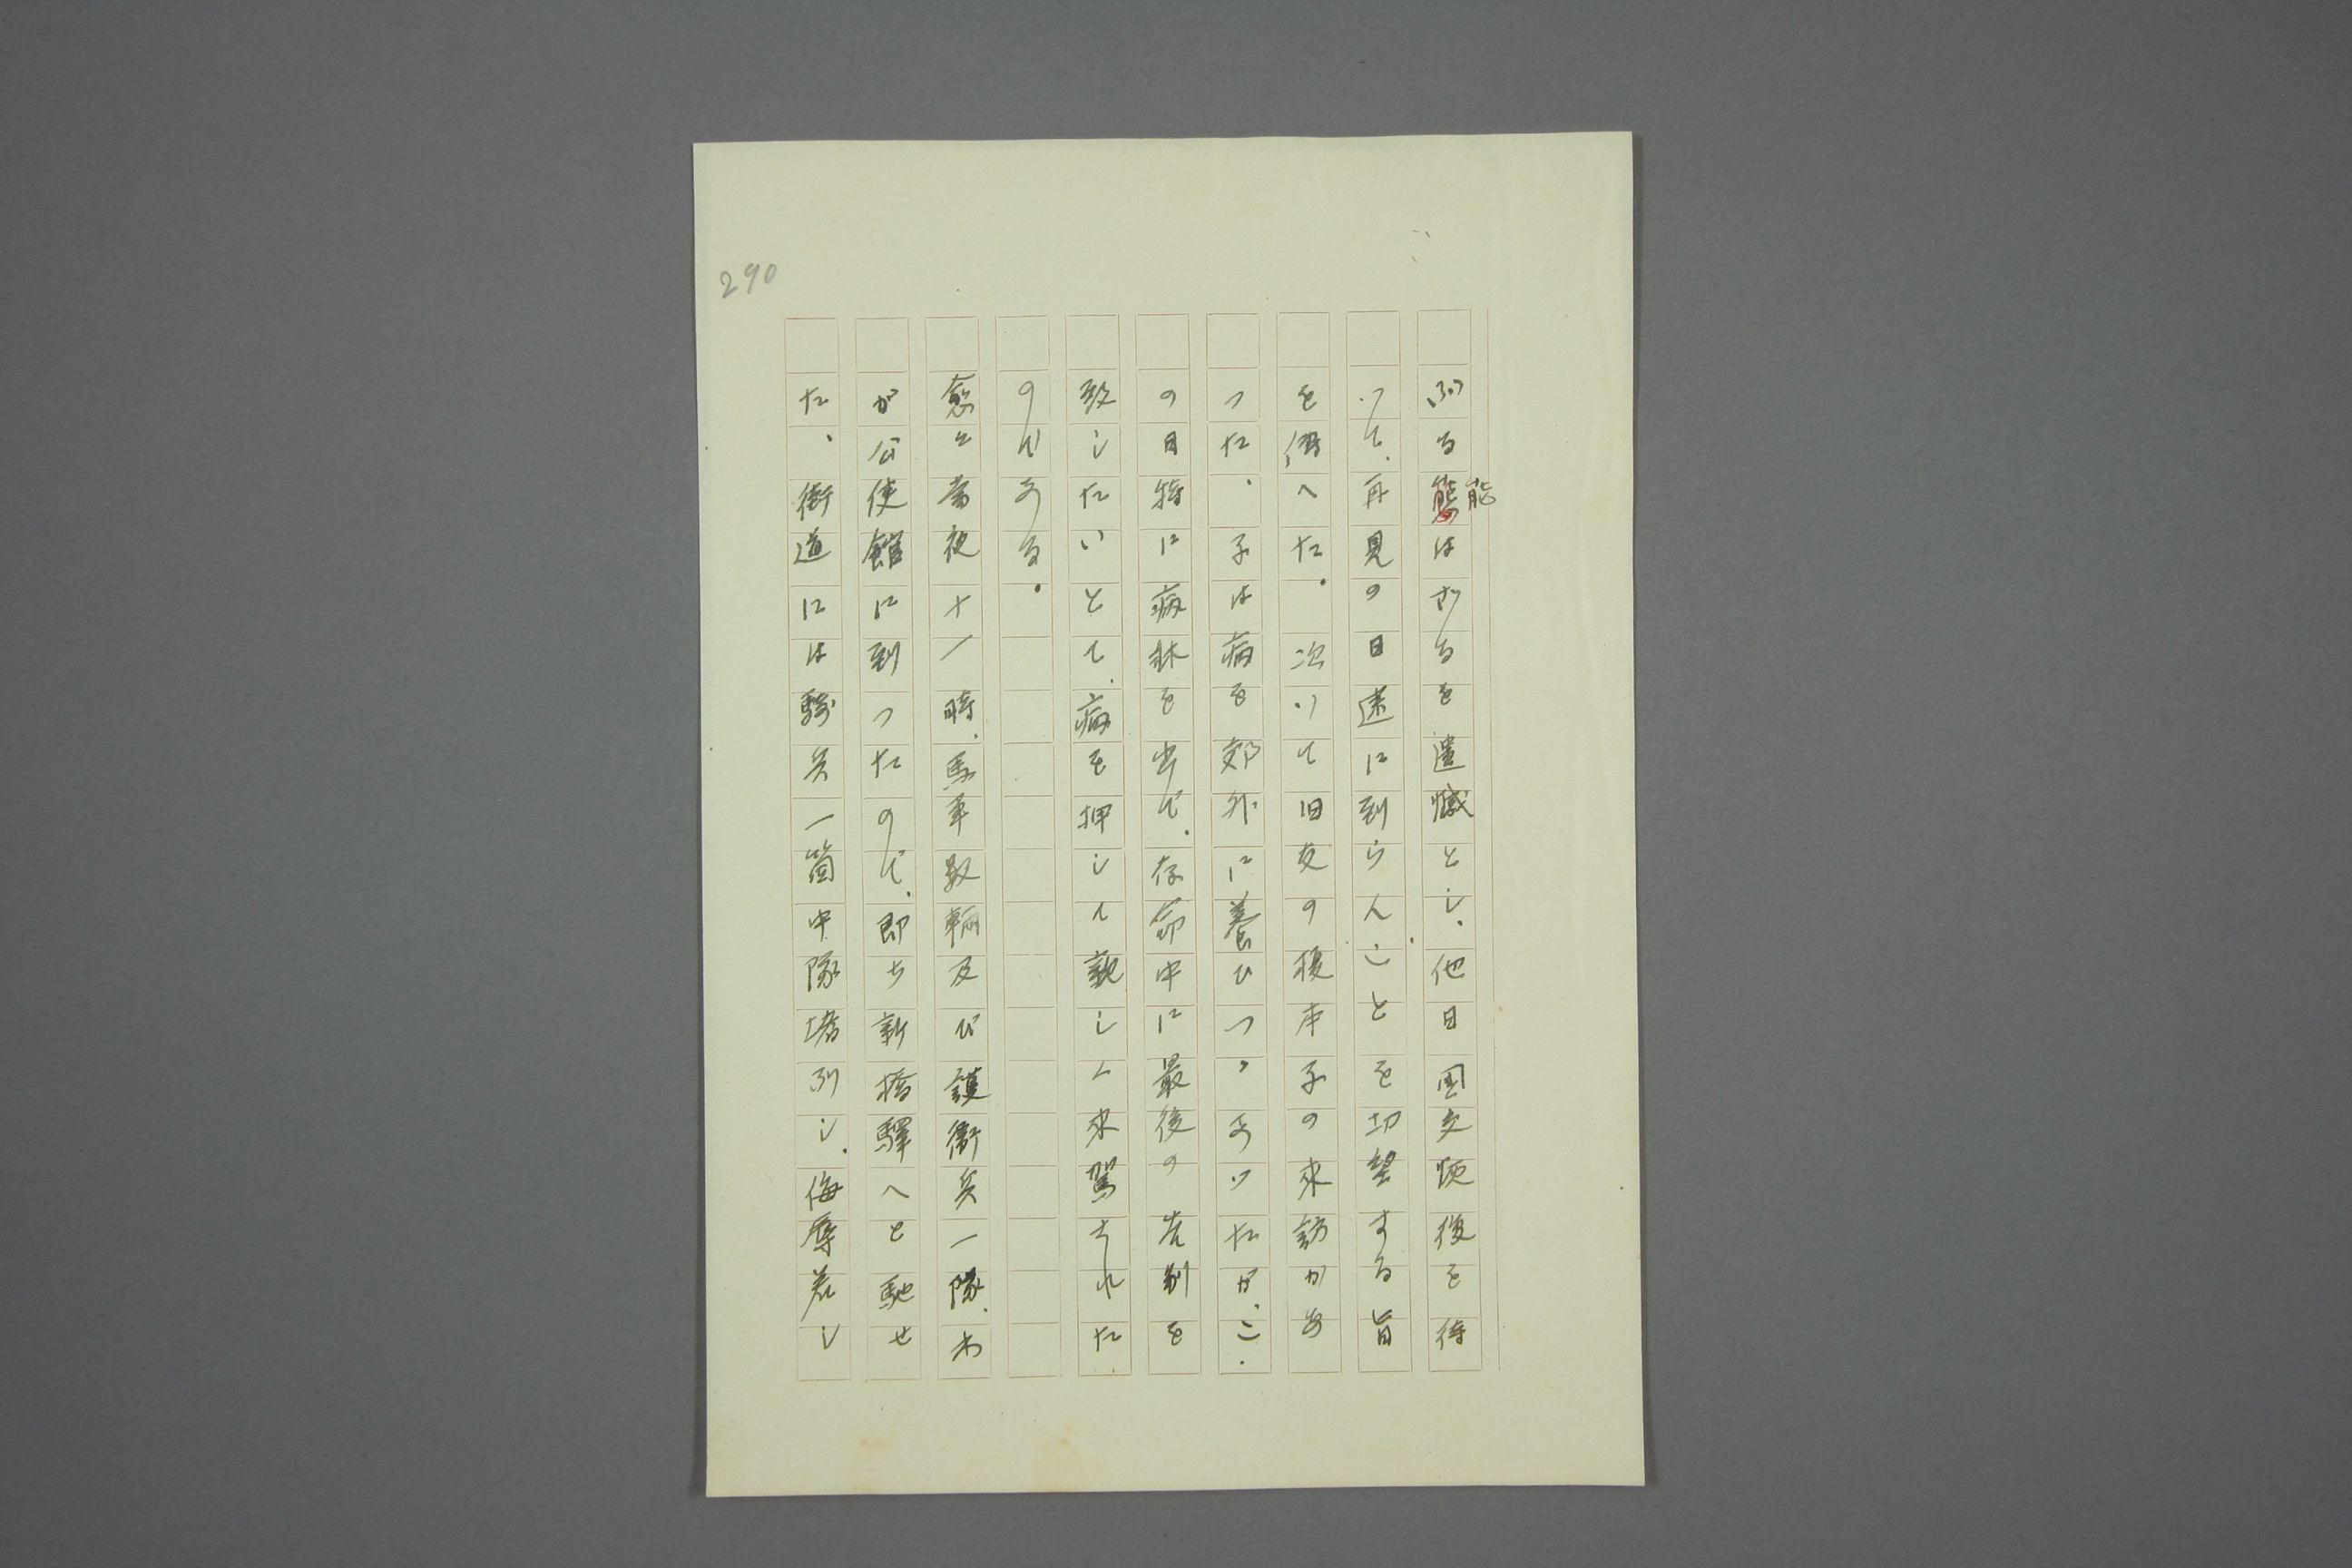 290
能
ふる態はざるを遺憾とし、他日国交恢復を待
って、再見の日速に到らんことを切望する旨
を傳へた。次いで旧友の榎本子の来訪があ
つた。子は病を郊外に養ひつゝあつたが、こ
の日特に病牀を出で、存命中に最後の告別を
致したいとて、病を押して親しく来駕された
のである。
愈々当夜十一時、馬車数輛及び護衛兵一隊、わ
が公使館に到つたので、即ち新橋驛へと馳せ
た。街道には騎兵一箇中隊堵列し、侮辱若し